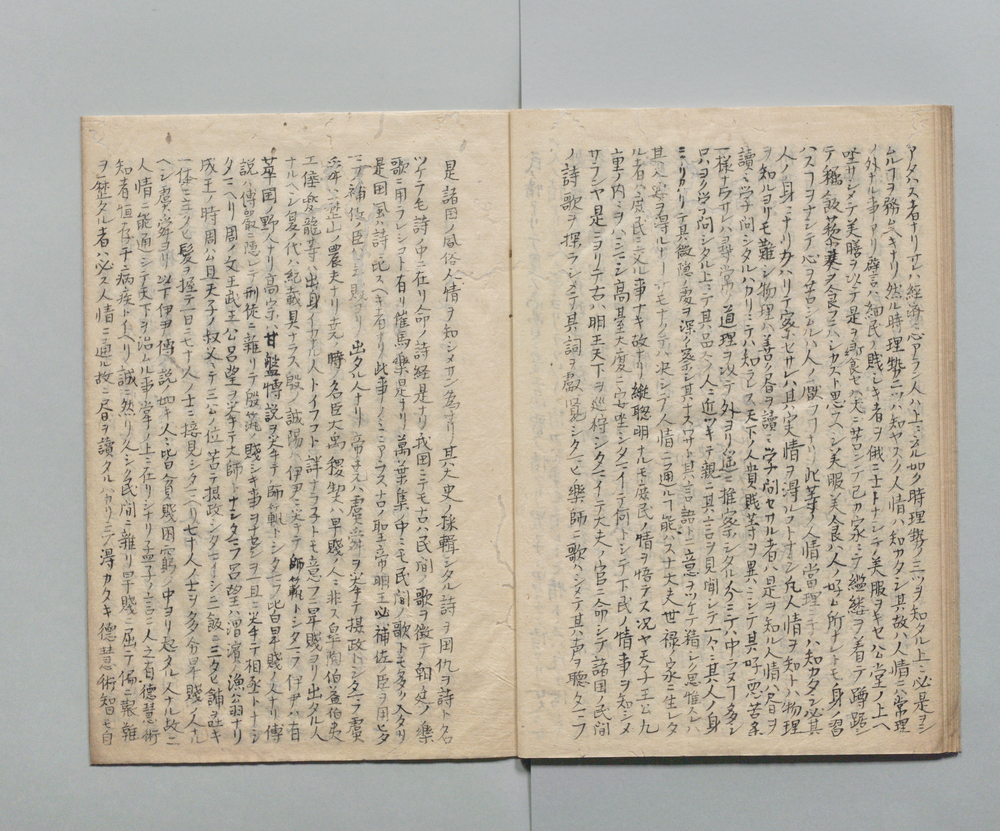 アタハス者ナリサレハ経済ニ心アラン人ハ上ニ云ル如ク時理勢ノ三ツヲ知タル上ニ必是ヲシ
ムルヿヲ務ムヘキナリ然ル時理勢ニツハ知ヤスク人情ハ知カタシ其故ハ人情ニハ常理
ノ外ナル事アリ譬ハ細民ノ賤シキ者ヲ俄ニ士トナシテ美服ヲキセ公堂ノ上ヘ
坐サシテ美膳ヲ以テ是ヲ食セハ大ニ苦ロシテ己カ家ニテ縕袍ヲ着テ蹲踞シ
テ麁飯藜羹ヲ食フニシカスト思フヘシ美服美食ハ人ノ好ム所ナレトモ身ノ習
ハスヿヲナシテ心ヲ苦シムルハ人ノ厭フヿナリ此等ノ人情当理ニテハ知カタシ必其
人ノ身ニナリカハリテ察セサレハ其実情ヲ得ルヿナシ凡人情ヲ知トハ物理
ヲ知ルヨリモ難シ物理ハ善ク昼ヲ讀ミ学問セサル者ハ是ヲ知ル人情ハ昼ヲ
讀ミ学問シタルハカリニテハ知レス天下ノ人貴賤等ヲ異ニシテ其好悪苦楽
一様ナラサレハ尋常ノ道理ヲ以テ外ヨリ遥ニ推察シタル分ニテハ中ラヌヿ多シ
ロハヨク学問シタル上ニテ其品々ノ人ニ近ツキテ親ニ其言ヲ見聞シテ一々ニ其人ノ身
ニナリカハリテ其微隠ノ處ヲ深ク察シ其ナスワサト其言語トニ意ヲツケテ精シク思惟スレハ
其人ノ心ヲ得ルナリサモナクテハ決シテ人情ニ通ルヿ能ハス士大夫世禄ノ家ニ生レタ
ル者ハ庶民ニ父ル事ナキ故ナリ縦聡明ナルモ庶民ノ情ヲ悟テス况ヤ天子王公九
重ノ内ニヲハシマシ高甍大廈ニ安坐シタマイテ何トシテ下民ノ情事ヲ知シメ
サランヤ是ニヨリテ古ハ明王天下ヲ巡狩シタマイテ大夫ノ官ニ命シテ諸国ノ民間
ノ詩歌ヲ採ラシメテ其詞ヲ叡覧シタマヒ樂師ニ歌ハシメテ其声ヲ聽タマフ
是諸国ノ風俗人情ヲ知シメサン為ナリ其大史ノ採輯シタル詩ヲ国仇ヲ詩ト名
ツケラモ詩中ニ在リ命ノ詩経是ナリ我国ニテモ古ハ民間ノ歌ヲ徴テ朝廷ノ樂
歌ニ用ラレシヿト有リ催馬樂是ナリ萬葉集中ニモ民間ノ歌トモ多ク入タリ
是国風ノ詩ニ比スヘキ者ナリ此事ノミニアラス古ノ聖帝明王必補佐ノ臣ヲ用ヒタ
マフ補佐ノ臣ハ多ク賤ヨリ出タル人ナリ帝尭ハ虞舜ヲ挙テ摂政トシタマフ虞
舜ハ歴山ノ農夫ナリ尭ノ時ノ名臣大禹稷契ハ早賤ノ人ニ非ス皐陶伯益伯夷
工倕夔龍等ハ出身イカナル人トイフヿト詳ナラ子トモ意フニ昇賤ヨリ出タル人
ナルヘシ夏ノ代ハ紀載具ナラス殷ノ誠陽ハ伊尹ヲ挙テ師範トシタマフ伊尹ハ有
莘国ノ野人ナリ高宗ハ甘盤傅説ヲ挙テ師範トシタマフ此皆卑賤ノ人ナリ傅
説ハ傅巖ニ隠レテ刑徒ニ雜リテ殷築ノ賤シキ事ヲ営セシヲ一旦ニ挙テ相丞トナシ
タマヘリ周ノ文王武王ハ呂望ヲ挙テ大師トナシタマフ呂望ハ渭濱ノ漁翁ナリ
成王ノ時周公旦天子ノ叔父ヘテ三公ノ位ニ居テ摂政シタマイシニ一飯ニ三タヒ哺ヲ吐キ
一沐ニ三タヒ髪ヲ握テ一日ニ七十人ノ士ニ接見シタマヘリ七十人ノ士ヲ多分卑賤ノ人ナル
ヘシ虞ノ舜ヨリ以下伊尹傅説ノ如キ人ニ皆貧賤困窮ノ中ヨリ起タル人ナル故ニ
人情ニ能通シテ天下ヲ治ムル事掌ノ上ニ在リシナリ孟子ノ言ニ人之有徳慧術
知者恒存乎疢疾トイヘリ誠ニ然リ人ハシ民間ニ雜リ卑賤ニ屈テ備ニ艱難
ヲ歴タル者ハ必ス人情ニ通ル故ニ昼ヲ讀タルハカリニテ得カタキ徳慧術智モ自